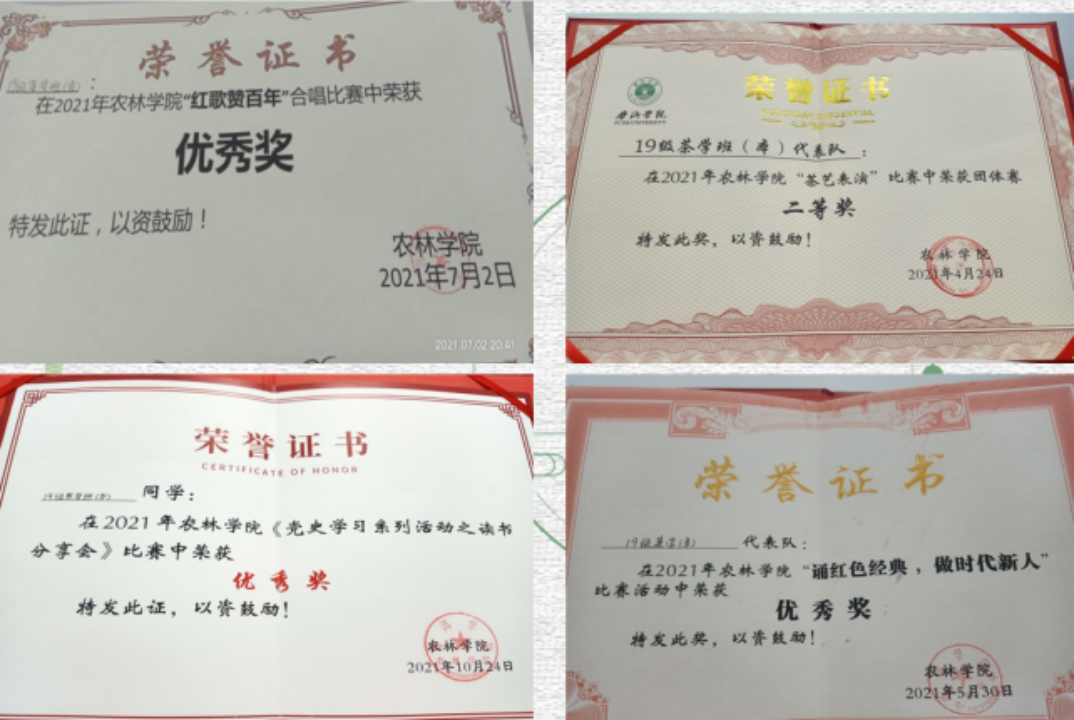 荣誉证书
:
在2021年农林学院“红歌赞百年”合唱比赛中荣获
优秀奖
特发此证，以资鼓励！
农林学院
2021年7月2日
2021.07.02 20:41
荣誉证书
19级茶学班（本）代表队：
在2021年农林学院“茶艺表演”比赛中荣获团体赛
二等奖
特发此奖，以资鼓励！
农林学院
2021年4月24日
荣誉证书
CERTIFICATE OF HONOR
同学：
在2021年农林学院《党史学习系列活动之读书
分享会》比赛中荣获
优秀奖
特发此证，以资鼓励！
农林学院
2021年10月24日
荣誉证书
19级茶学(本) 代表队：
在2021年农林学院“诵红色经典，做时代新人”
比赛活动中荣获
优秀奖
特发此奖，以资鼓励！
农林学院
2021年5月30日